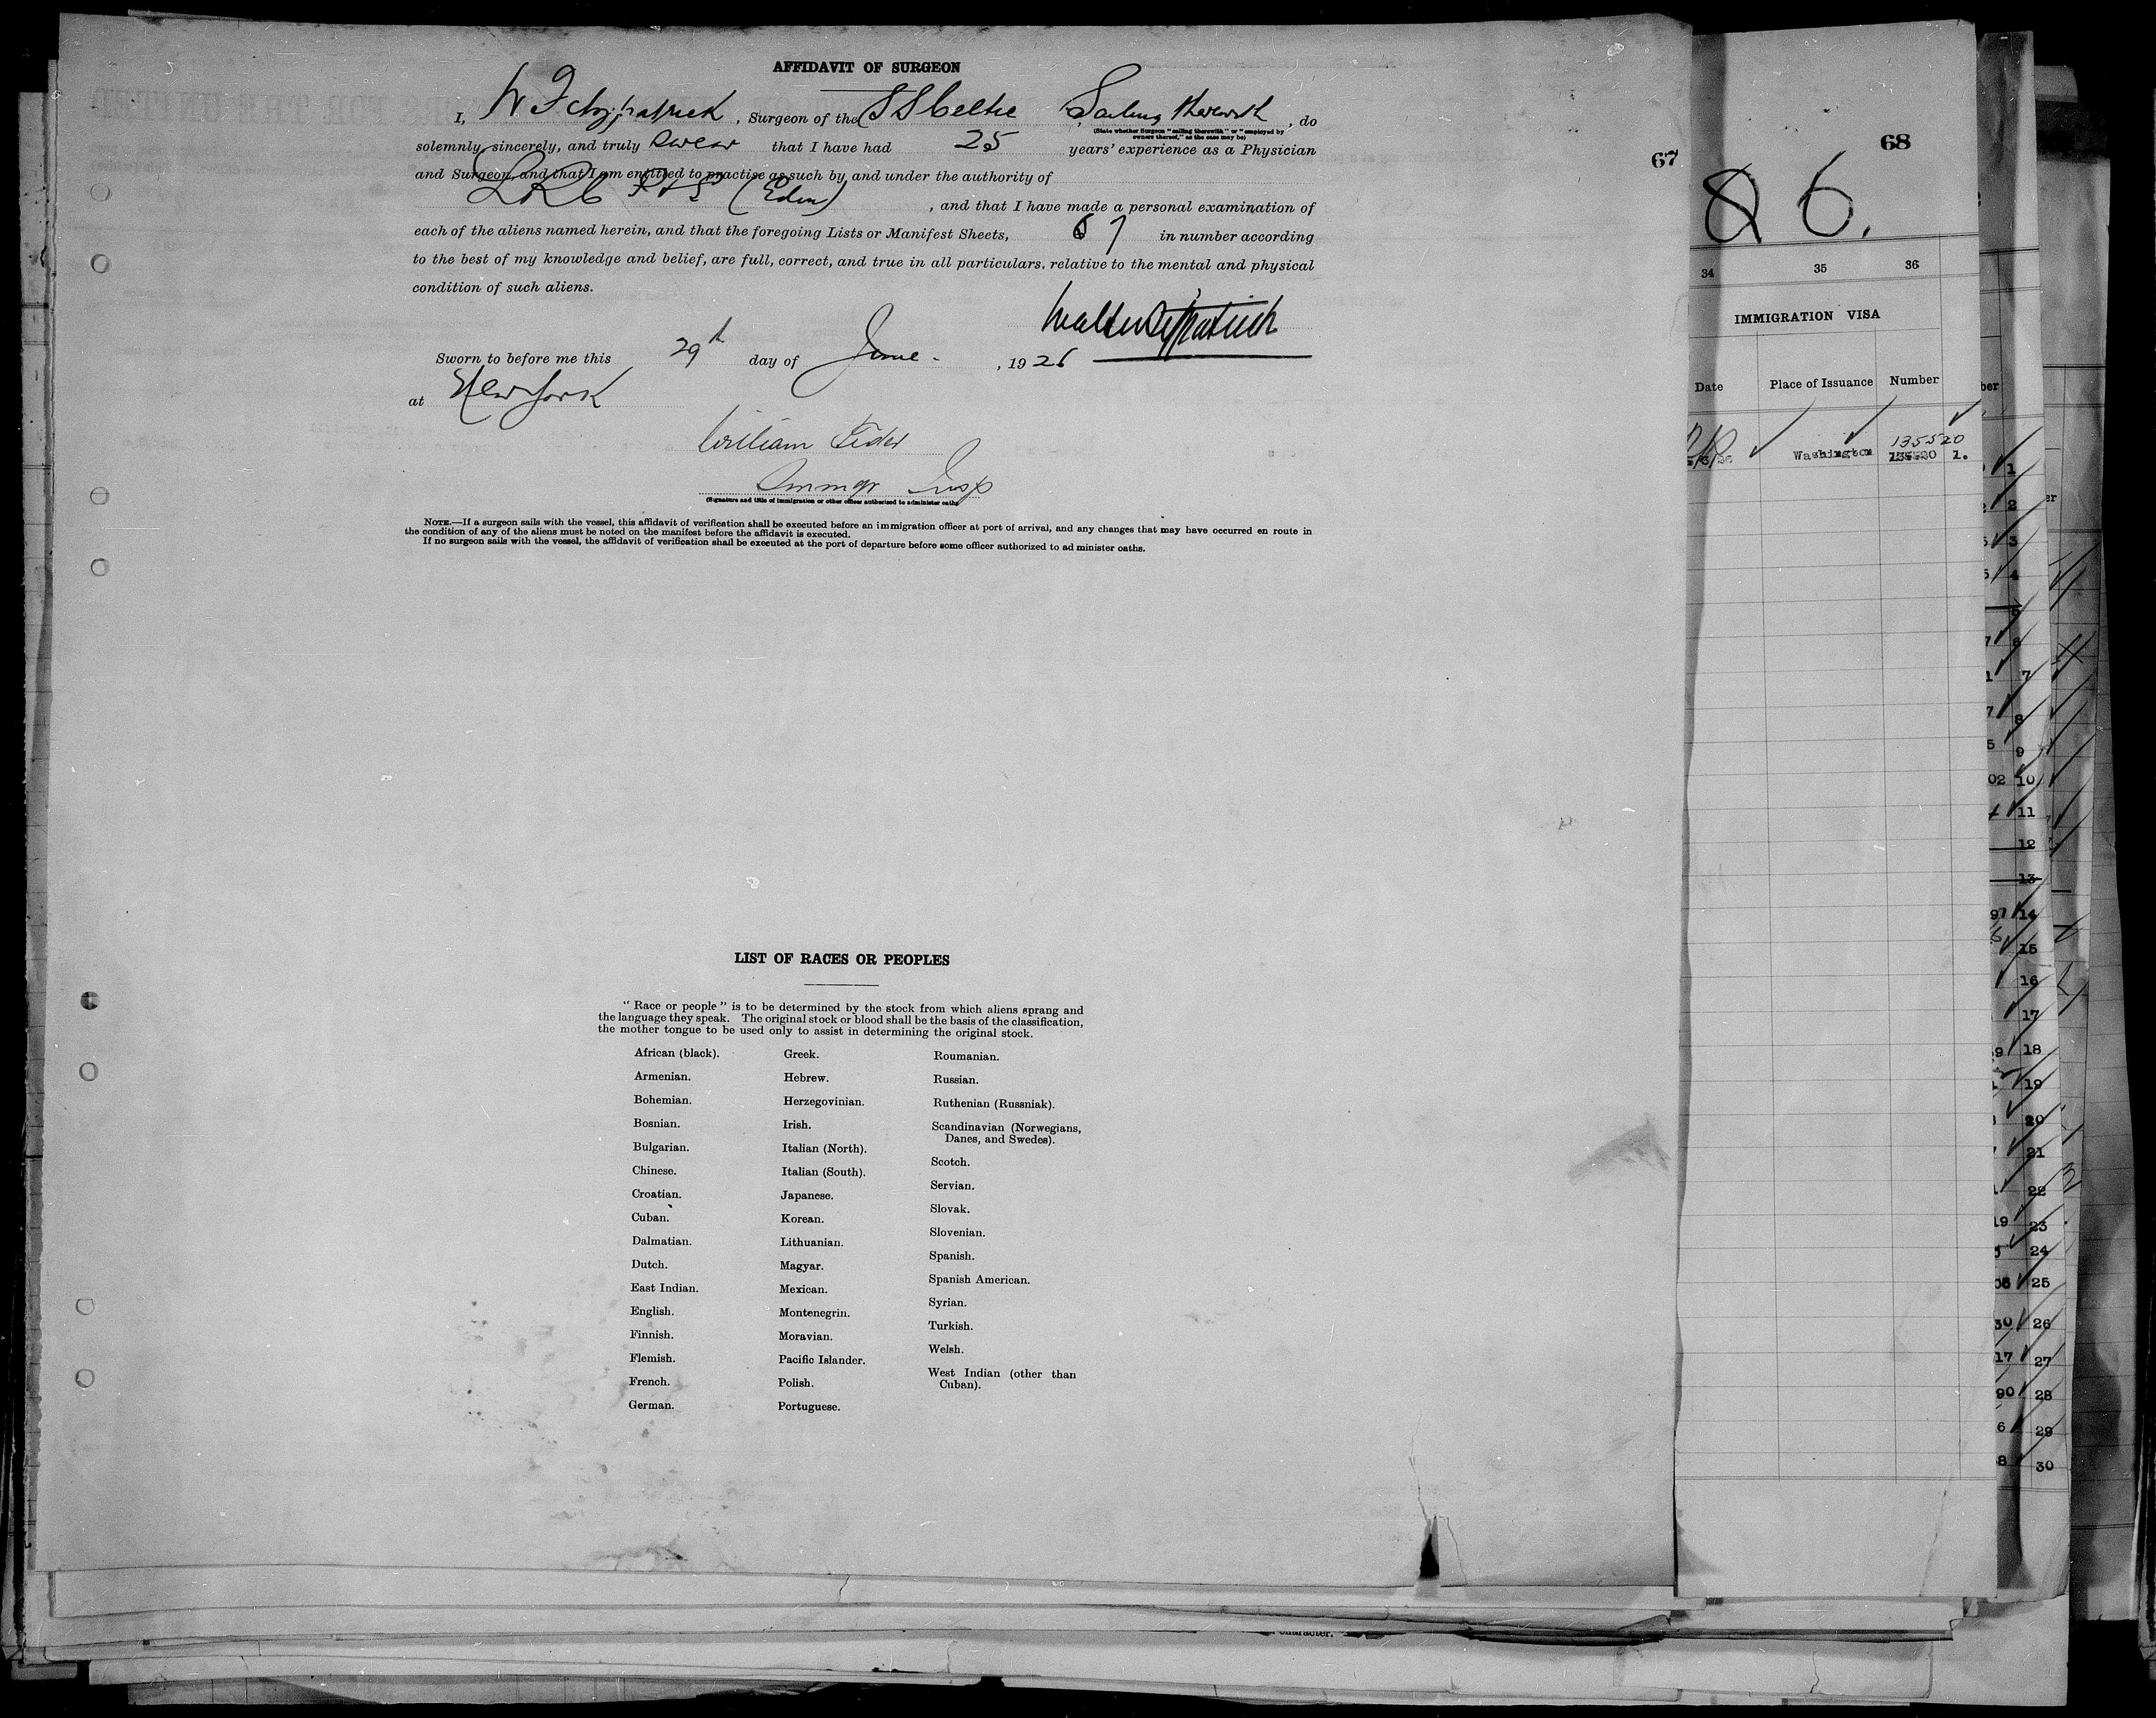 AFFIDAVIT OF SURGEON
I, W Fitzpatrick, Surgeon of the SS Celtic Sailing therewith, do
(State whether Surgeon "sailing therewith" or "employed by
owners thereof," as the case may be)
solemnly, sincerely, and truly swear that I have had 25 years' experience as a Physician
and Surgeon, and that I am entitled to practise as such by and under the authority of
LRC P & S (Edin), and that I have made a personal examination of
each of the aliens named herein, and that the foregoing Lists or Manifest Sheets, 67 in number according
to the best of my knowledge and belief, are full, correct, and true in all particulars, relative to the mental and physical
condition of such aliens.
Walter Fitzpatrick
Sworn to before me this 29th day of June, 1926
at New York
William
Immgr Insp
(Signature and title of immigration or other officer authorized to administer oaths)
NOTE.—If a surgeon sails with the vessel, this affidavit of verification shall be executed before an immigration officer at port of arrival, and any changes that may have occurred en route in
the condition of any of the aliens must be noted on the manifest before the affidavit is executed.
If no surgeon sails with the vessel, the affidavit of verification shall be executed at the port of departure before some officer authorized to ad minister oaths.
LIST OF RACES OR PEOPLES
"Race or people" is to be determined by the stock from which aliens sprang and
the language they speak. The original stock or blood shall be the basis of the classification,
the mother tongue to be used only to assist in determining the original stock.
African (black).
Armenian.
Bohemian.
Bosnian.
Bulgarian.
Chinese.
Croatian.
Cuban.
Dalmatian.
Dutch.
East Indian.
English.
Finnish.
Flemish.
French.
German.
Greek.
Hebrew.
Herzegovinian.
Irish.
Italian (North).
Italian (South).
Japanese.
Korean.
Lithuanian.
Magyar.
Mexican.
Montenegrin.
Moravian.
Pacific Islander.
Polish.
Portuguese.
Roumanian.
Russian.
Ruthenian (Russniak).
Scandinavian (Norwegians,
Danes, and Swedes).
Scotch.
Servian.
Slovak.
Slovenian.
Spanish.
Spanish American.
Syrian.
Turkish.
Welsh.
West Indian (other than
Cuban).
67
68
86.
34 35 36
IMMIGRATION VISA
Date Place of Issuance Number
135520
Washington 1.
1
2
3
4
5
6
7
8
9
10
11
12
13
14
15
16
17
18
19
20
21
22
23
24
25
26
27
28
29
30
character.